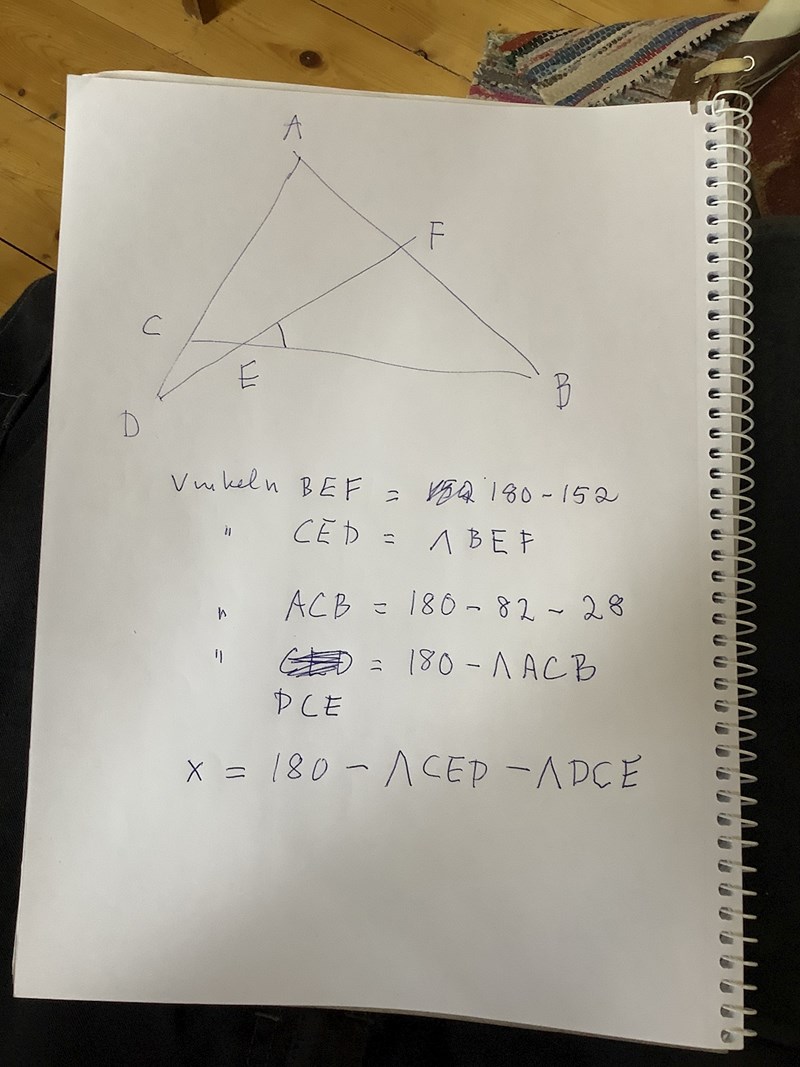 A
F
C
E
B
D
Vinkeln BEF = 180 - 152
" CED = ∧ BEF
" ACB = 180 - 82 - 28
" = 180 - ∧ ACB
DCE
x = 180 - ∧CED - ∧DCE